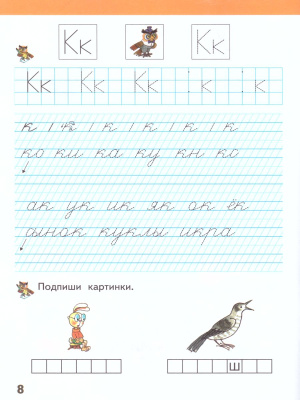 Кк Кк
Кк Кк Кк Кк к к
к к к к к к
ко ки ка ку кн кс
ак ук ик як ок ёк
сынок куклы икра
Подпиши картинки.
ш
8